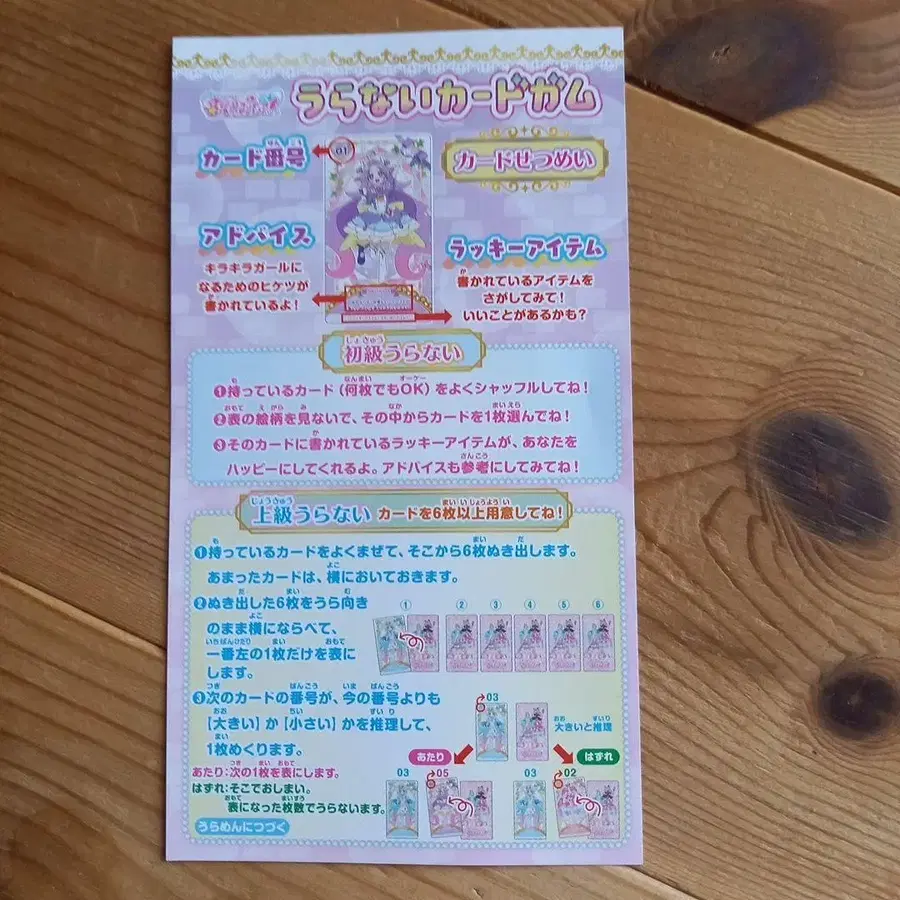 うらないカードガム
カード番号
01
カードせつめい
アドバイス
キラキラガールに
なるためのヒケツが
書かれているよ!
ラッキーアイテム
書かれているアイテムを
さがしてみて!
いいことがあるかも?
初級うらない
❶持っているカード(何枚でもOK)をよくシャッフルしてね!
❷表の絵柄を見ないで、その中からカードを1枚選んでね!
❸そのカードに書かれているラッキーアイテムが、あなたを
ハッピーにしてくれるよ。アドバイスも参考にしてみてね!
上級うらない カードを6枚以上用意してね!
❶持っているカードをよくまぜて、そこから6枚ぬき出します。
あまったカードは、横においておきます。
❷ぬき出した6枚をうら向き
のまま横にならべて、
一番左の1枚だけを表に
します。
① ② ③ ④ ⑤ ⑥
❸次のカードの番号が、今の番号よりも
【大きい】か【小さい】かを推理して、
1枚めくります。
03
大きいと推理
あたり
はずれ
あたり:次の1枚を表にします。
はずれ:そこでおしまい。
表になった枚数でうらないます。
03 05 03 02
うらめんにつづく